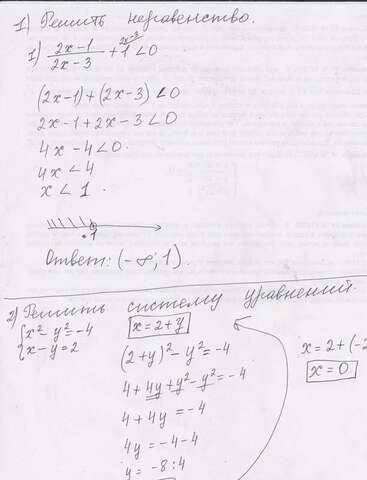 1) Решить неравенство.
1) (2x-1)/(2x-3) + 1^(2x-3) < 0
(2x-1)+(2x-3) < 0
2x-1+2x-3<0
4x-4<0.
4x<4
x < 1.
1
Ответ: (-∞; 1).
2) Решить систему уравнений.
{x²-y²=-4
{x-y=2
x=2+y
(2+y)²-y²=-4
4+4y+y²-y²=-4
4+4y=-4
4y=-4-4
y=-8:4
x=2+(-2
x=0.